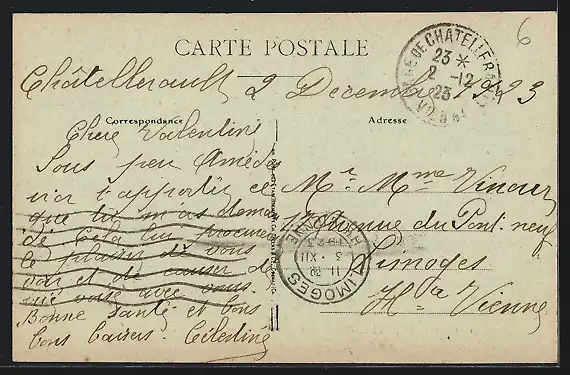 6
CARTE POSTALE
GARE DE CHATELLERAULT
23 *
2 -12
23
Châtellerault 2 Decembre 1923
Correspondance
Adresse
Chère Valentine
Sous peu Amédée
ira t'apporter ce
que tu m'as deman
dé Cela lui procurera
le plaisir de vous
voir et de causer de
vive voix avec vous.
Bonne Santé et bons
bons baisers. Célestine
Mr. Mme
17 Avenue du Pont-neuf
Limoges
Hte Vienne
LIMOGES
11 30
3 · XII
1923